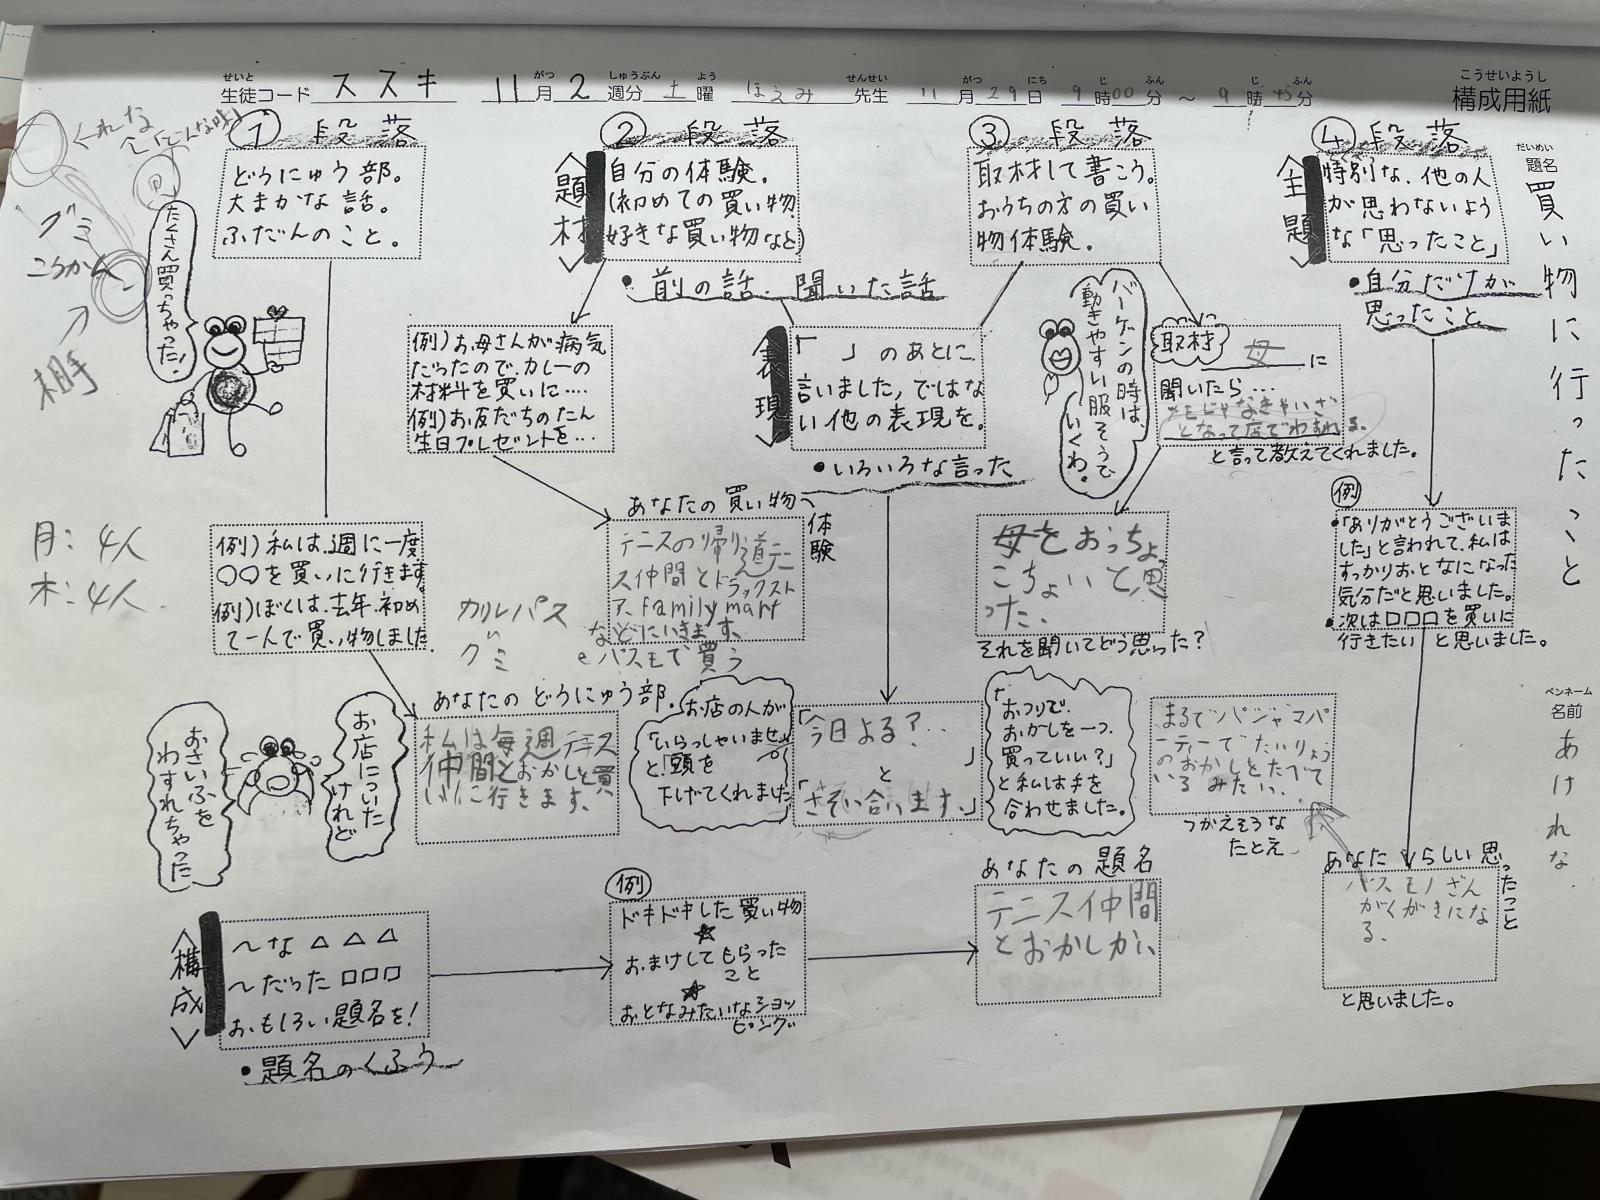 せいと
生徒コード ススキ 11月 2 週分 土曜 ほえみ 先生 11月29日 9時00分 ~ 9時45分
がつ しゅうぶん よう せんせい がつ にち じ ふん じ ふん
こうせいようし
構成用紙
だいめい
題名
買い物に行ったこと
ペンネーム
名前
あけれな
① 段落
どうにゅう部。
大まかな話。
ふだんのこと。
② 段落
<題材>
自分の体験。
(初めての買い物
好きな買い物など)
・前の話、聞いた話
③ 段落
取材して書こう。
おうちの方の買い
物体験。
④ 段落
<主題>
特別な、他の人
が思わないよう
な「思ったこと」
・自分だけが
思ったこと
くれな
グミ
こうかん
相手
たくさん買っちゃった!
月:4人
木:4人
例)お母さんが病気
だったので、カレーの
材料を買いに‥‥
例)お友だちのたん
生日プレゼントを‥‥
<表現>
「 」のあとに、
言いました,ではな
い他の表現を。
・いろいろな言った
バーゲンの時は、
動きやすい服そうで
いくわ。
取材
母に
聞いたら‥‥
となって店でわすれる。
と言って教えてくれました。
例
・「ありがとうございま
した」と言われて、私は
すっかりおとなになった
気分だと思いました。
・次は□□□を買いに
行きたい と思いました。
例)私は、週に一度
○○を買いに行きます
例)ぼくは、去年、初め
て一人で買い物しました
あなたの買い物
体験
テニスの帰り道テニ
ス仲間とドラックスト
ア、family mart
などにいきます、
パスモで買う
カルパス
グミ
母をおっちょ
こちょいと思
った、
それを聞いてどう思った?
あなたの どうにゅう部.
私は毎週テニス
仲間とおかしを買
いに行きます、
お店についた
けれど
おさいふを
わすれちゃった
お店の人が
「いらっしゃいませ」
と、頭を
下げてくれました
「今日よる?‥
」
と
「さそい合います、」
「おつりで、
おかしを一つ、
買っていい?」
と私は手を
合わせました。
まるでパジャマパ
ーティーでたいりょう
のおかしをたべて
いる みたい、
つかえそうな
たとえ
あなたらしい思ったこと
パスモノざん
がくがきにな
る、
と思いました。
<構成>
~な △ △ △
~だった □□□
おもしろい題名を!
・題名のくふう
例
ドキドキした買い物
☆
おまけしてもらった
こと
☆
おとなみたいなショッ
ピング
あなたの題名
テニス仲間
とおかしかい、